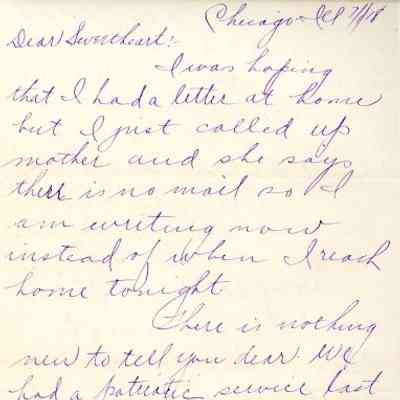 Chicago Ill 7/1/18
Dear Sweetheart:-
I was hoping
that I had a letter at home
but I just called up
mother and she says
there is no mail so I
am writing now
instead of when I reach
home tonight.
There is nothing
new to tell you dear. We
had a patriotic service last